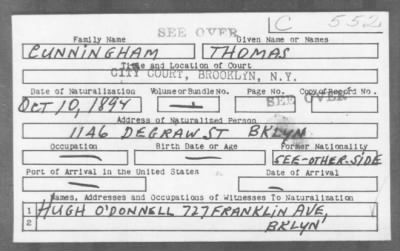 SEE OVER C 552
Family Name Given Name or Names
CUNNINGHAM THOMAS
Title and Location of Court
CITY COURT, BROOKLYN, N.Y.
Date of Naturalization Volume or Bundle No. Page No. Copy of Record No.
OCT 10, 1894 — SEE OVER
Address of Naturalized Person
1146 DEGRAW ST BKLYN
Occupation Birth Date or Age Former Nationality
— — SEE-OTHER-SIDE
Port of Arrival in the United States Date of Arrival
— —
Names, Addresses and Occupations of Witnesses To Naturalization
1 HUGH O'DONNELL 727 FRANKLIN AVE,
2 BKLYN